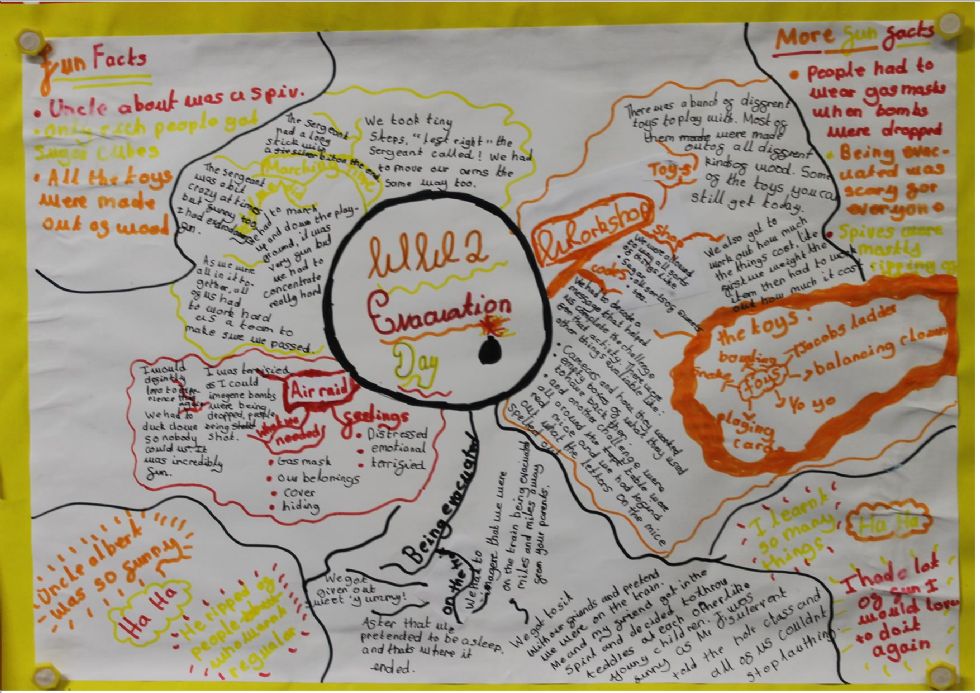 Fun Facts
• Uncle about was a spiv.
• only rich people got
sugar cubes
• All the toys
were made
out of wood
More fun facts
• People had to
wear gas masks
when bombs
were dropped
• Being evac-
uated was
scary for
everyone
• Spives were
mostly
ripping
WW2
Evacuation
Day
The sergeant
had a long
stick with
We took tiny
steps, "left right" the
sergeant called! We had
to move our arms the
same way too.
Marching
The sergeant
was a bit
crazy at times
but funny too
I had
fun.
We had to march
up and down the play-
ground, it was
very fun but
we had to
concentrate
really hard
As we were
all in it to-
gether, all
of us had
to work hard
as a team to
make sure we passed.
There was a bunch of different
toys to play with. Most of
them made were made
out of all different
kinds of wood. Some
of the toys you can
still get today.
Toys
Workshop
shop
We also got to
work out how much
the things cost, like
first we weight the
item then had to work
out how much it cost
codes
We had to decode a
message that helped
us complete the challenge
for that activity. There were
other things available like:
• Cameras and how they worked
• empty boxes of what they used
to have back then
• and another challenge were
all around the table were
fake mice and we had to find
out what the letters on the mice
the toys:
bowling
Snake
Toys
Jacobs ladder
balancing clown
Yo yo
playing
cards
Air raid
feelings
• Distressed
• emotional
• terrified
what we
needed
• Gas mask
• our belonings
• cover
• hiding
I was terrified
as I could
imegene bombs
were being
dropped, people
being
shot.
I would
We had to
duck down
so nobody
could us. It
was incredibly
fun.
Being evacuated
on the
We had to
imagere that we were
on the train being evacuated
miles and miles away
from your parents.
We got
given out
sweet 'yummy!
After that we
pretended to be asleep,
and thats where it
ended.
We got to sit
with our friends and pretend
we were on the train.
Me and my friend got in the
spirit and decided to throw
teddies at each other like
young children. I was
funny as Mr
told the hole class and
all of us couldnt
stop laughing
Uncle albert
was so funny
Ha Ha
He ripped of
people
who weren't
regular
I learnt
so many
things
Ha Ha
I had a lot
of fun I
would love
to do it
again